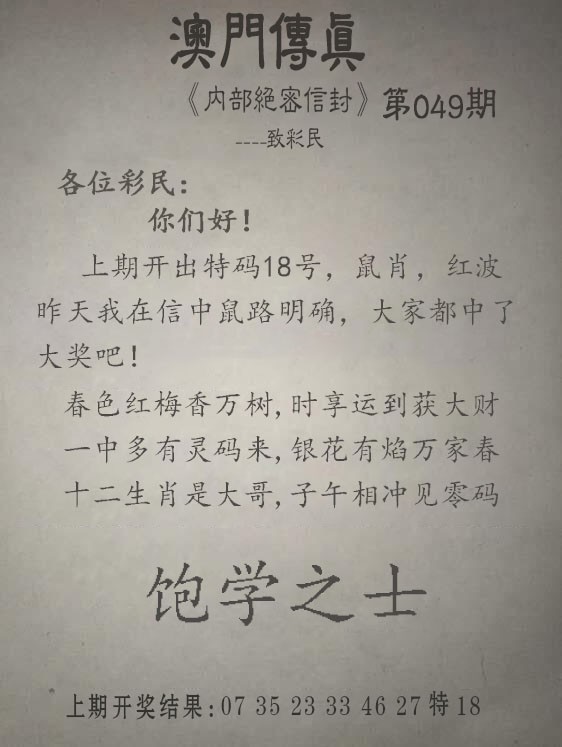 澳門傳眞
《内部絕密信封》第049期
----致彩民
各位彩民:
你们好!
上期开出特码18号, 鼠肖, 红波
昨天我在信中鼠路明确, 大家都中了
大奖吧!
春色红梅香万树,时享运到获大财
一中多有灵码来,银花有焰万家春
十二生肖是大哥,子午相冲见零码
饱学之士
上期开奖结果:07 35 23 33 46 27 特 18